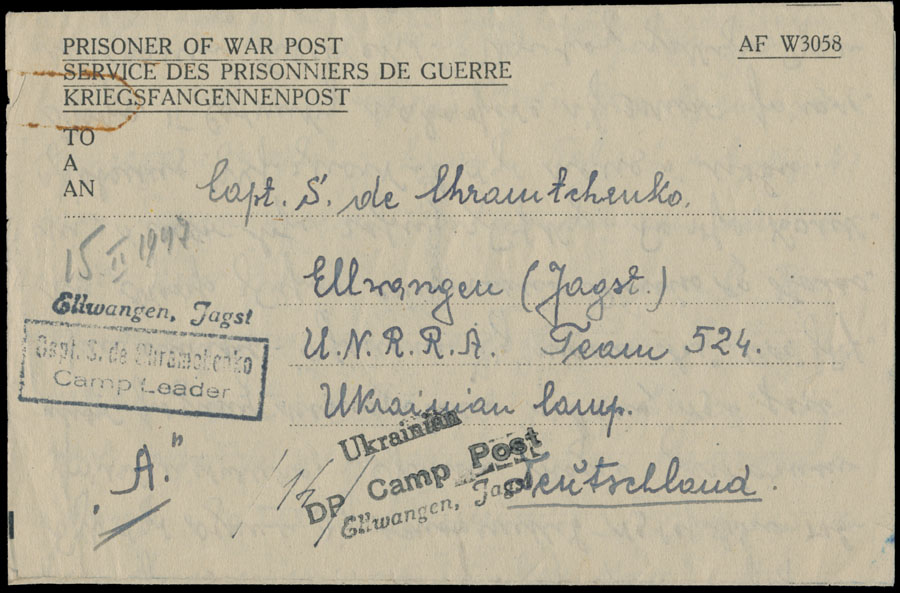 PRISONER OF WAR POST
AF W3058
SERVICE DES PRISONNIERS DE GUERRE
KRIEGSFANGENNENPOST
TO
A
AN
Capt. S. de Chramtchenko.
15. II 1947
Ellwangen (Jagst.)
Ellwangen, Jagst
U.N.R.R.A. Team 524.
Capt. S. de Chramtchenko
Camp Leader
Ukrainian Camp.
Ukrainian
"A."
DP Camp Post
Ellwangen, Jagst
Deutschland.